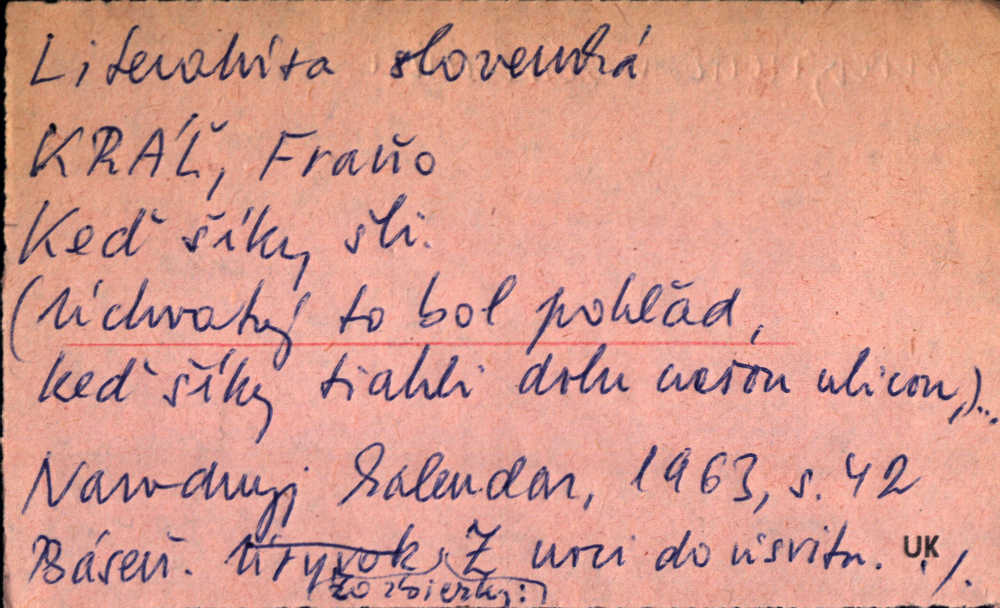 Literatúra slovenská
KRÁĽ, Fraňo
Keď šíky šli.
(Úchvatný to bol pohľad,
keď šíky tiahli dolu našou ulicou,)...
Narodnyj kalendar, 1963, s. 42
Báseň. Úryvok Z noci do úsvitu. UK ./.
zo zbierky: